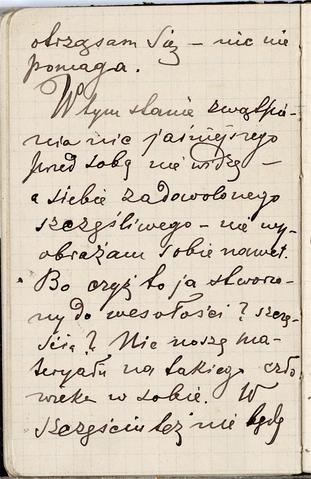 otrząsam się – nic nie
pomaga.
W tym stanie zwątpie-
nia nic jaśniejszego
przed sobą nie widzę –
a siebie zadowolonego
szczęśliwego – nie wy-
obrażam sobie nawet.
Bo czyż to ja stworzo-
ny do wesołości? szczę-
ścia? Nie noszę ma-
teryału na takiego czło
wieka w sobie. W
szczęściu też nie będę